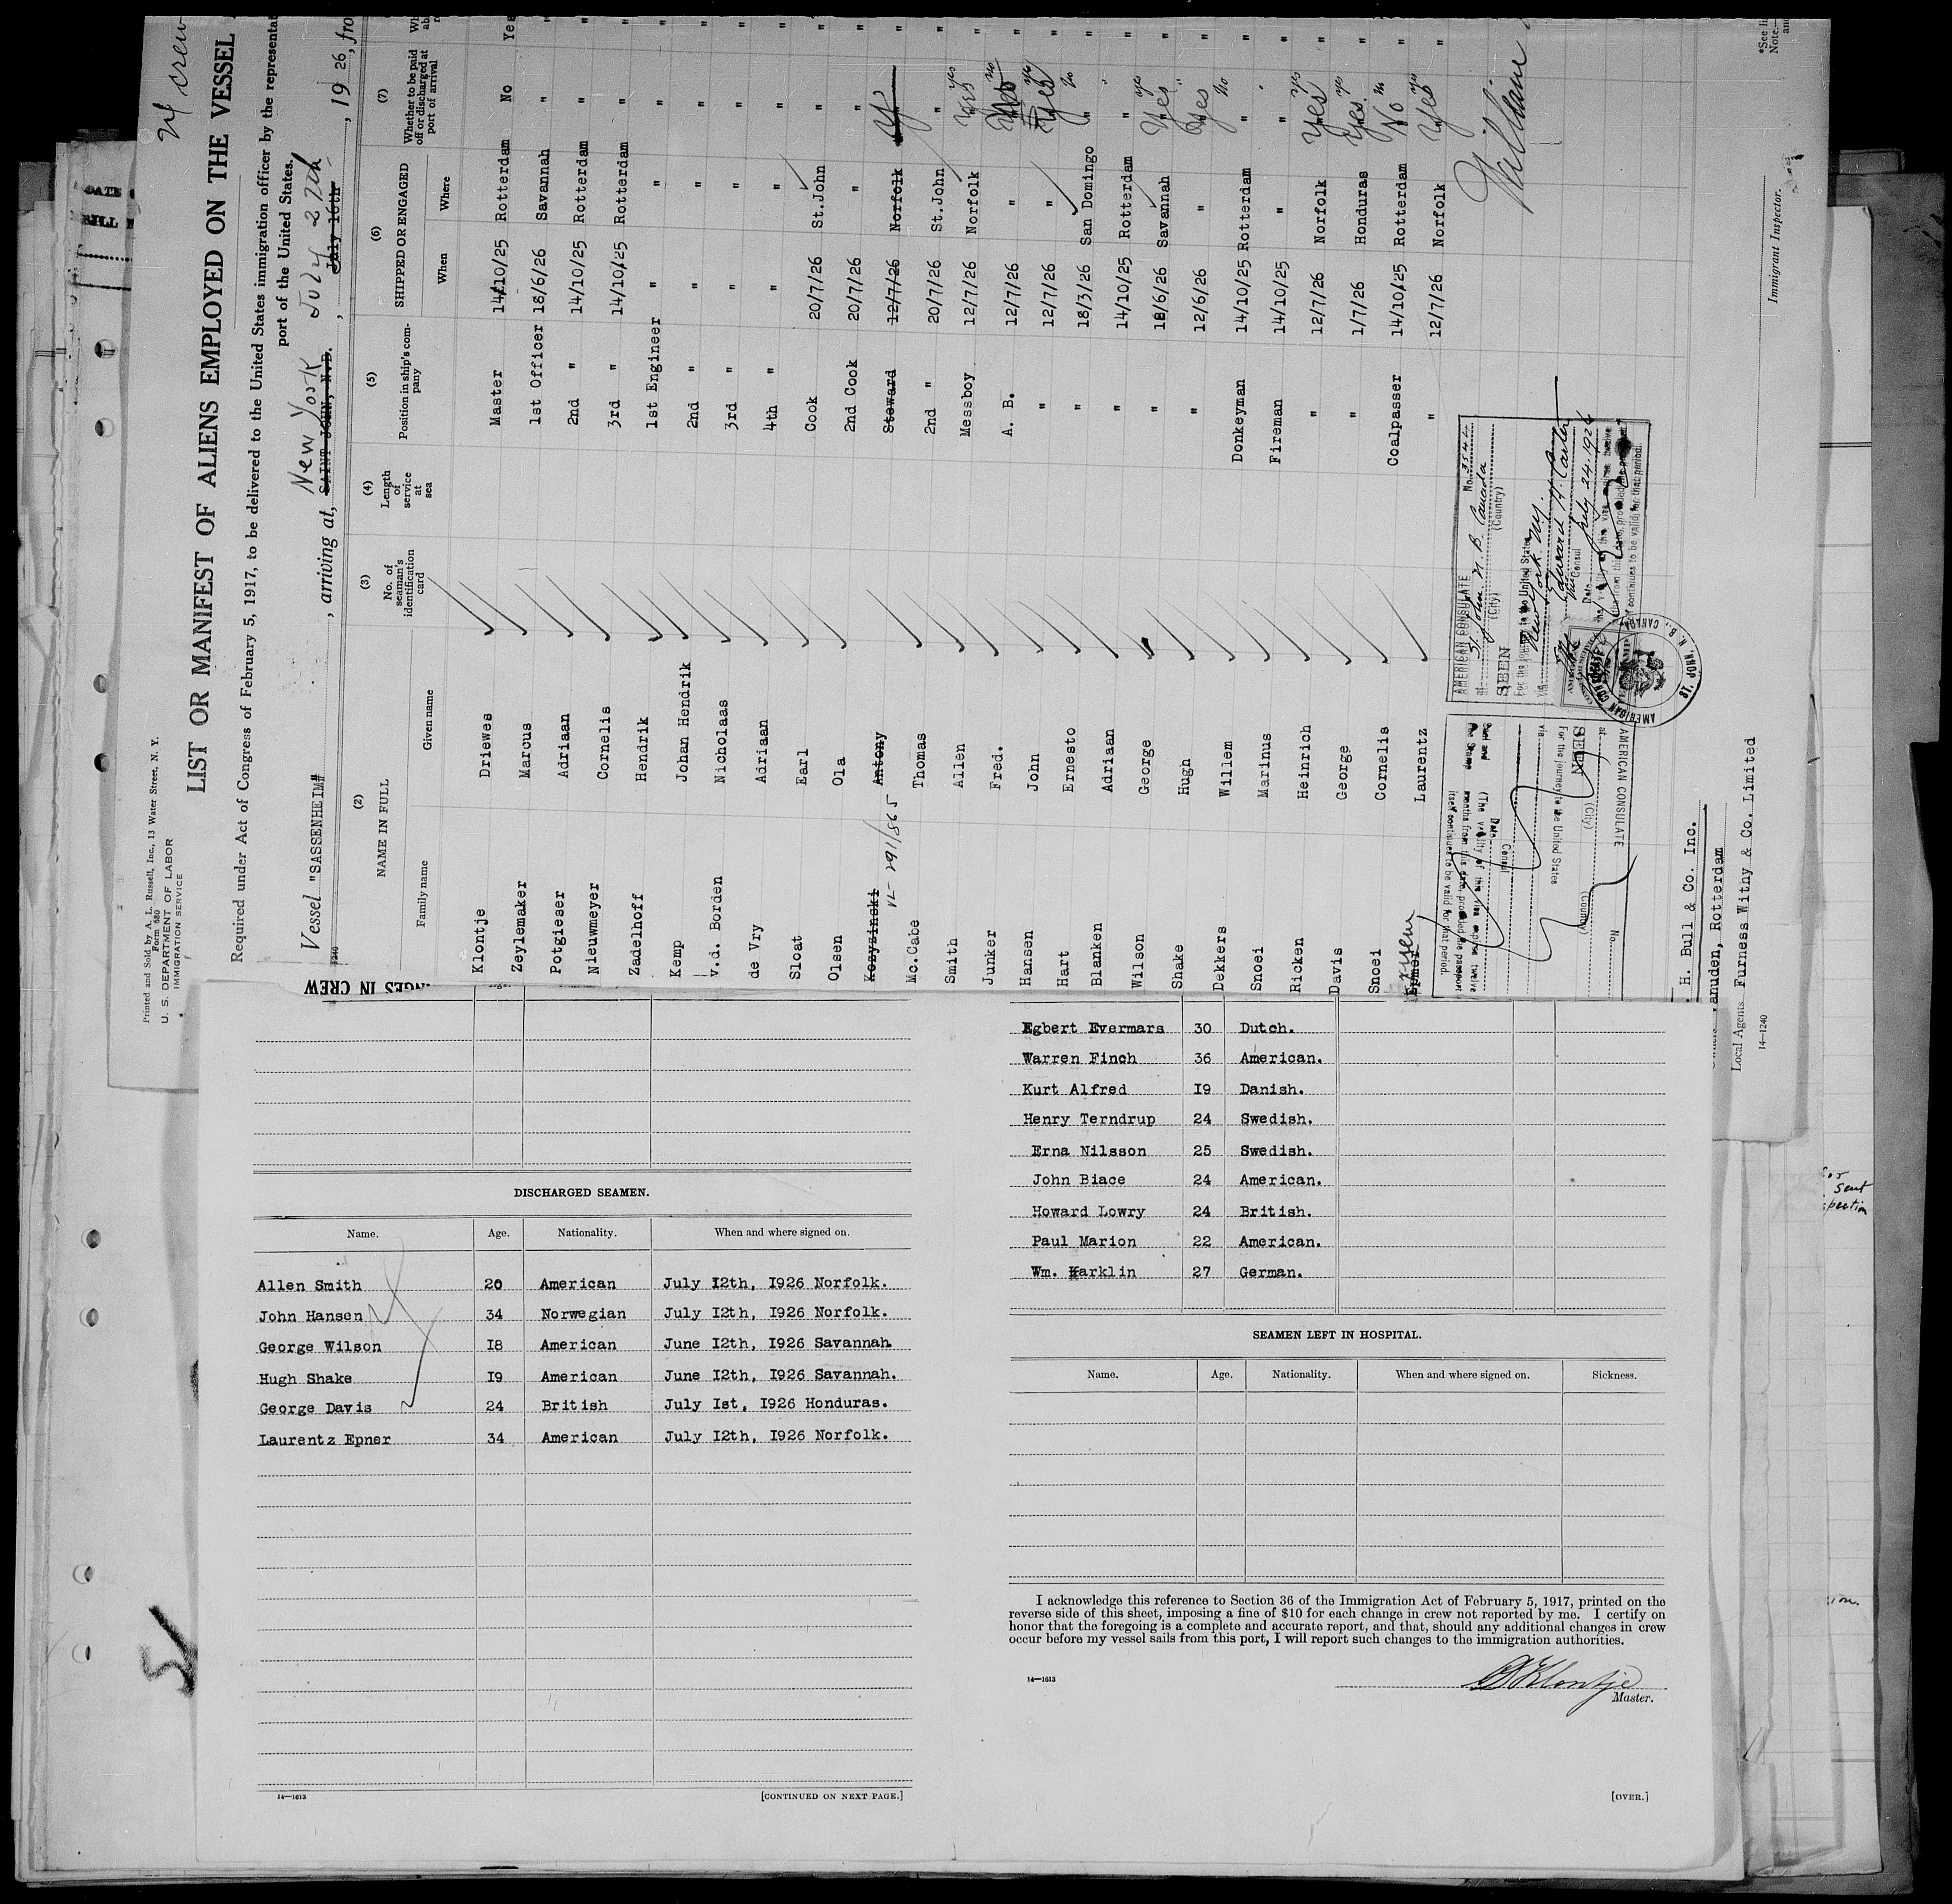 24 crew
Printed and Sold by A. L. Russell, Inc., 13 Water Street, N. Y.
Form 680
U. S. DEPARTMENT OF LABOR
IMMIGRATION SERVICE
LIST OR MANIFEST OF ALIENS EMPLOYED ON THE VESSEL
Required under Act of Congress of February 5, 1917, to be delivered to the United States immigration officer by the representat
port of the United States.
Vessel "SASSENHEIM" , arriving at, SAINT JOHN, N.B. New York , July 16th July 27th , 19 26, fro
(2) NAME IN FULL
Family name Given name
(3) No. of seaman's identification card
(4) Length of service at sea
(5) Position in ship's company
(6) SHIPPED OR ENGAGED
When Where
(7) Whether to be paid off or discharged at port of arrival
Klontje Driewes Master 14/10/25 Rotterdam No Yes
Zeylemaker Marcus 1st Officer 18/6/26 Savannah " "
Potgieser Adriaan 2nd " 14/10/25 Rotterdam " "
Nieuwmeyer Cornelis 3rd " 14/10/25 Rotterdam " "
Zadelhoff Hendrik 1st Engineer " " " "
Kemp Johan Hendrik 2nd " " " " "
v.d. Borden Nicholaas 3rd " " " " "
de Vry Adriaan 4th " " " " "
Sloat Earl Cook 20/7/26 St.John " "
Olsen Ola 2nd Cook 20/7/26 " " "
Kozyzinski Antony Steward 12/7/26 Norfolk "
VL- 291/865
Mc.Cabe Thomas 2nd " 20/7/26 St.John " "
Smith Allen Messboy 12/7/26 Norfolk Yes yes "
Junker Fred. A. B. 12/7/26 " no "
Hansen John " 12/7/26 " Yes yes "
Hart Ernesto " 18/3/26 San Domingo " no "
Blanken Adriaan " 14/10/25 Rotterdam " "
Wilson George " 12/6/26 Savannah Yes yes "
Shake Hugh " 12/6/26 " Yes "
Dekkers Willem Donkeyman 14/10/25 Rotterdam " no "
Snoei Marinus Fireman 14/10/25 " " "
Ricken Heinrich " 12/7/26 Norfolk Yes yes "
Davis George " 1/7/26 Honduras Yes yes "
Snoei Cornelis Coalpasser 14/10/25 Rotterdam No no "
Epner Laurentz " 12/7/26 Norfolk Yes yes "
William
Immigrant Inspector.
*See li
Note.—
AMERICAN CONSULATE
at St. John N. B. Canada No. 3544
(City) (Country)
SEEN
For the journey to the United States
via New York NY.
Edward H. Carter
Vice Consul
Date July 24. 1926
AMERICAN CONSULATE
ST. JOHN, N. B., CANADA
AMERICAN CONSULATE
at No.
(City) (Country)
SEEN
For the journey to the United States
via
Consul
Date
(The validity of this visa expires twelve
months from this date, provided the passport
itself continues to be valid for that period.
. H. Bull & Co. Inc.
anuden, Rotterdam
Local Agents Furness Withy & Co. Limited
14—1240
NGES IN CREW
DISCHARGED SEAMEN.
Name. Age. Nationality. When and where signed on.
Allen Smith 20 American July I2th, I926 Norfolk.
John Hansen 34 Norwegian July I2th, I926 Norfolk.
George Wilson I8 American June I2th, I926 Savannah.
Hugh Shake I9 American June I2th, I926 Savannah.
George Davis 24 British July Ist, I926 Honduras.
Laurentz Epner 34 American July I2th, I926 Norfolk.
14—1613
[CONTINUED ON NEXT PAGE.]
Egbert Evermars 30 Dutch.
Warren Finch 36 American.
Kurt Alfred I9 Danish.
Henry Terndrup 24 Swedish.
Erna Nilsson 25 Swedish.
John Biace 24 American.
Howard Lowry 24 British.
Paul Marion 22 American.
Wm. Harklin 27 German.
SEAMEN LEFT IN HOSPITAL.
Name. Age. Nationality. When and where signed on. Sickness.
I acknowledge this reference to Section 36 of the Immigration Act of February 5, 1917, printed on the
reverse side of this sheet, imposing a fine of $10 for each change in crew not reported by me. I certify on
honor that the foregoing is a complete and accurate report, and that, should any additional changes in crew
occur before my vessel sails from this port, I will report such changes to the immigration authorities.
14—1613
D Klontje
Master.
[OVER.]
sent